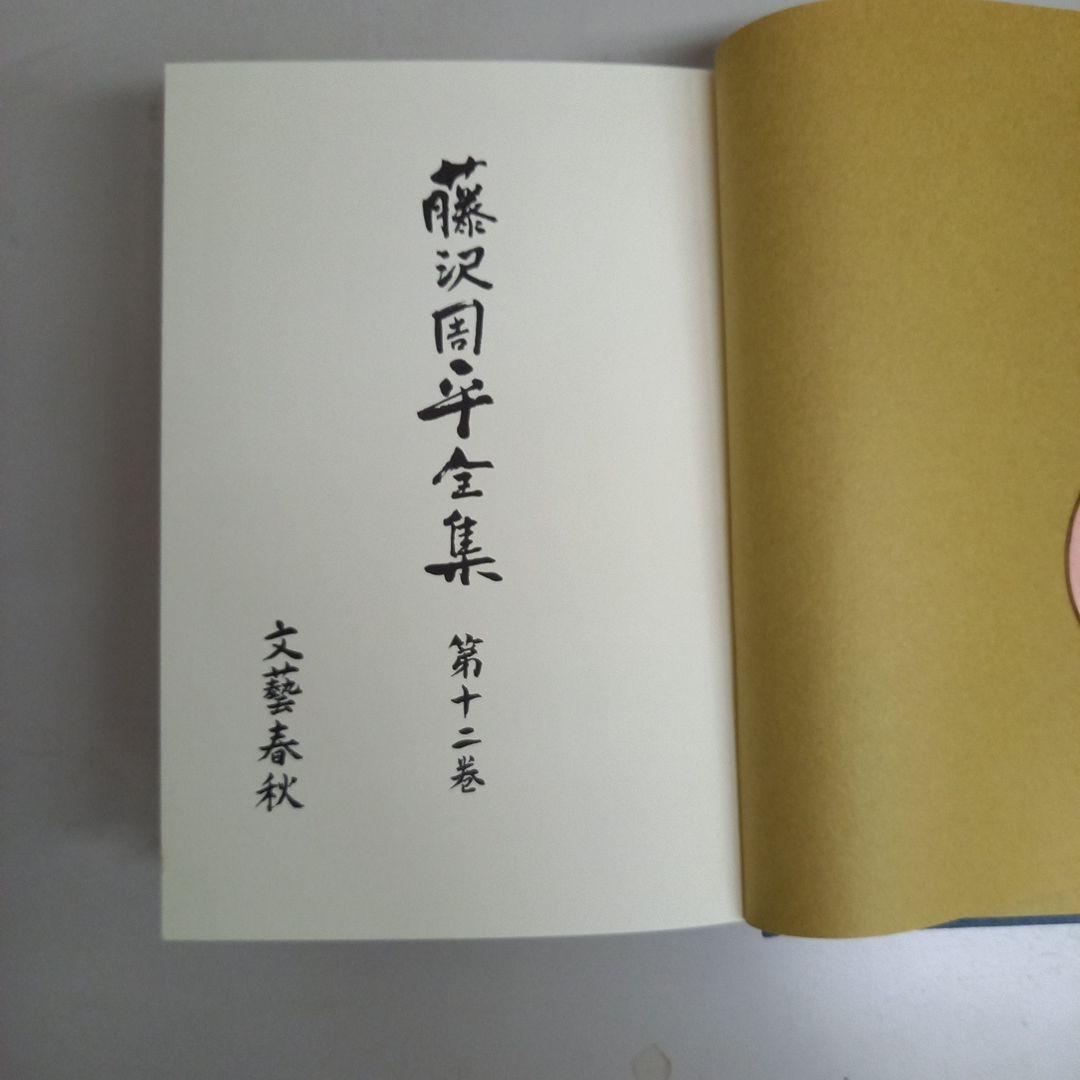 藤沢周平全集 第十二巻
文藝春秋